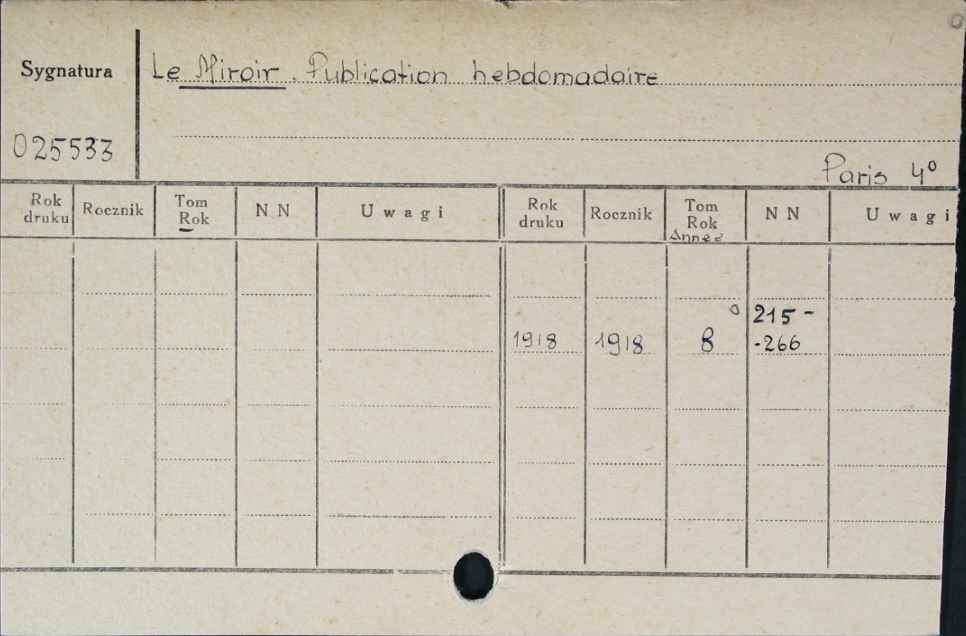 Sygnatura
Le Miroir. Publication hebdomadaire
025533
Paris 4º
Rok druku Rocznik Tom Rok N N Uwagi Rok druku Rocznik Tom Rok Année N N Uwagi
215 -
1918 1918 8º -266